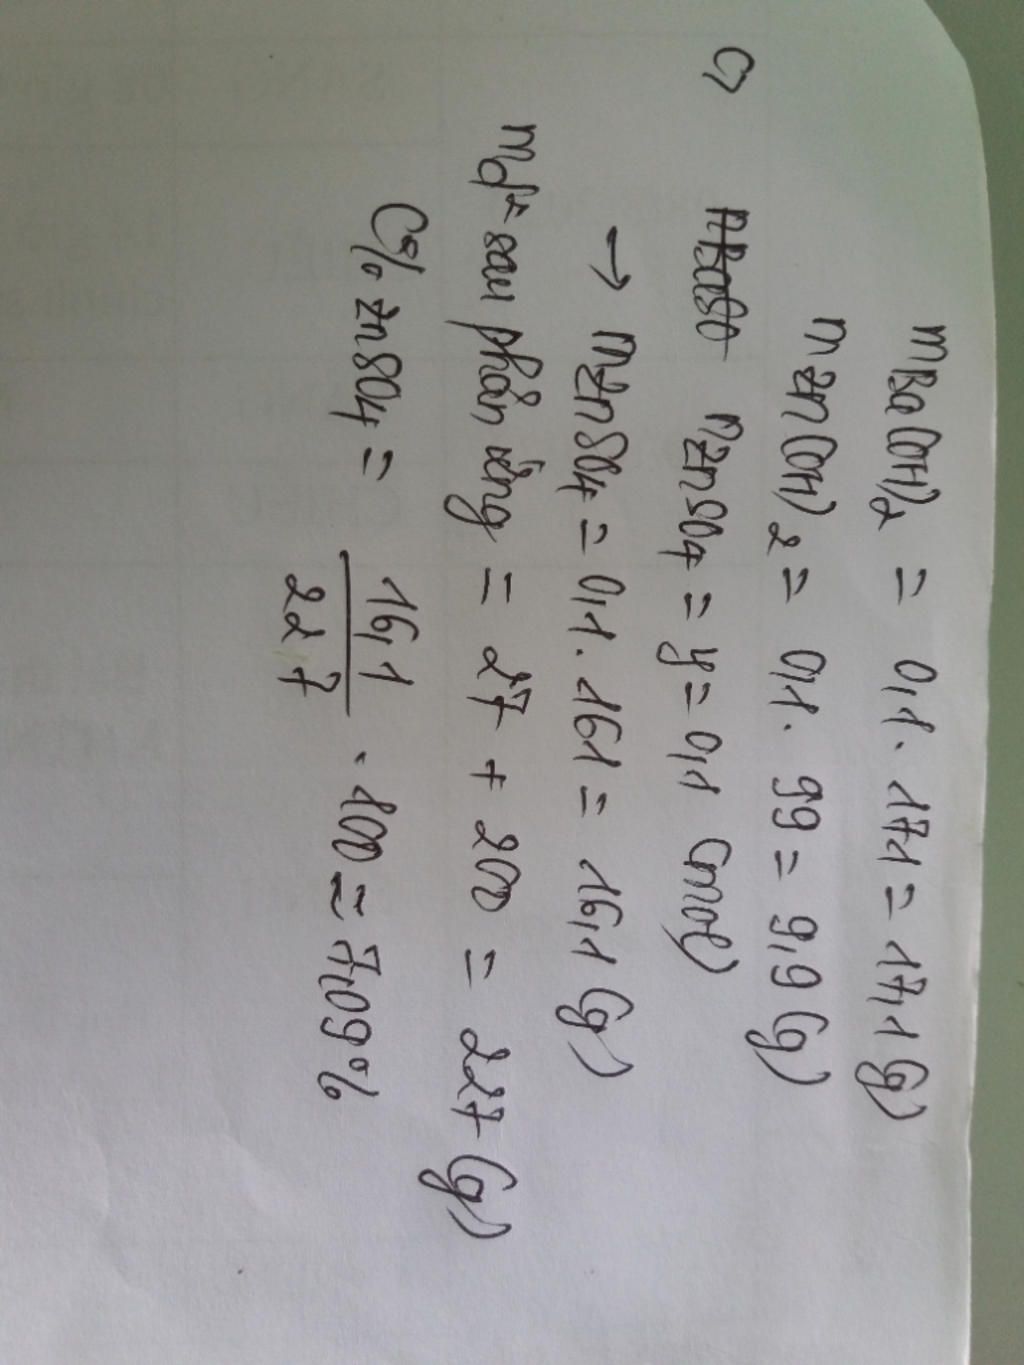 mBa(OH)2 = 0,1 . 171 = 17,1 (g)
mZn(OH)2 = 0,1 . 99 = 9,9 (g)
c) nBaSO nZnSO4 = y = 0,1 (mol)
→ mZnSO4 = 0,1 . 161 = 16,1 (g)
mdd sau phản ứng = 27 + 200 = 227 (g)
C% ZnSO4 = 16,1/227 . 100 = 7,09%